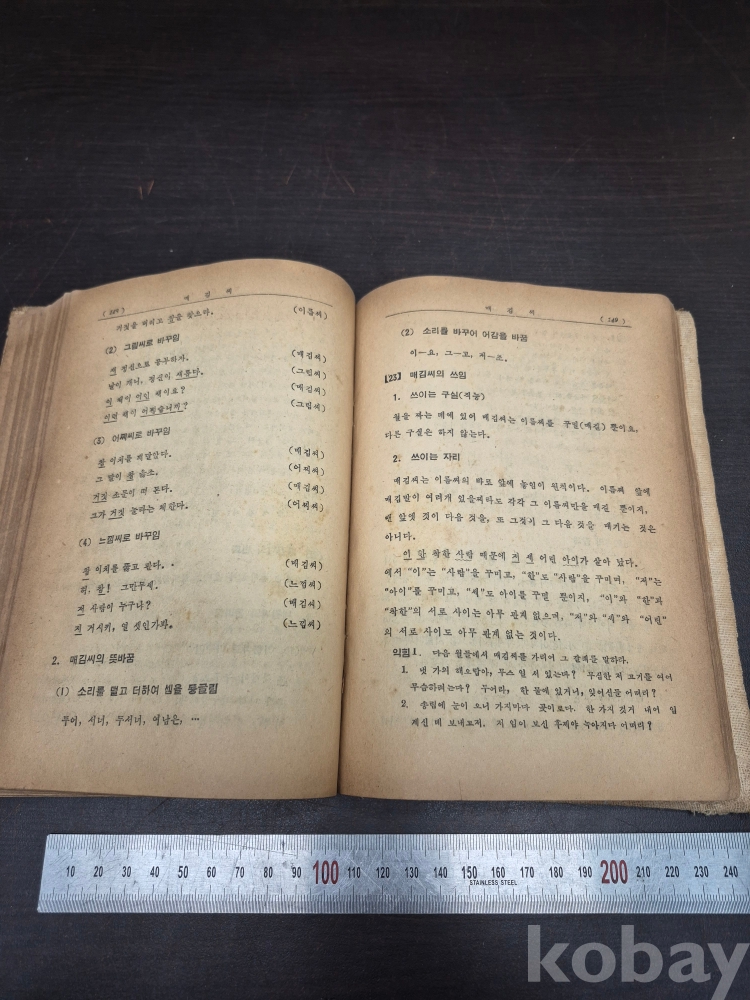 매 김 씨
거짓을 버리고 참을 찾으라. (이름씨)
(2) 그림씨로 바꾸임
새 정신으로 공부하자. (매김씨)
날이 개니, 정신이 새롭다. (그림씨)
어떤 책이요? (매김씨)
이런 책이 어떠합니까? (그림씨)
(3) 어찌씨로 바꾸임
참 이치를 깨달았다. (매김씨)
그 말이 참 옳소. (어찌씨)
거짓 소문이 떠 돈다. (매김씨)
그가 거짓 놀라는 체한다. (어찌씨)
(4) 느낌씨로 바꾸임
참 이치를 품고 판다. (매김씨)
하, 참! 그만두세. (느낌씨)
저 사람이 누구냐? (매김씨)
저 거시키, 열 셋인가봐. (느낌씨)
2. 매김씨의 뜻바꿈
(1) 소리를 덜고 더하여 셈을 뭉글림
두어, 서너, 두서너, 여남은, …
매 김 씨 (249)
(2) 소리를 바꾸어 어감을 바꿈
이―요, 그―고, 저―조.
【23】 매김씨의 쓰임
1. 쓰이는 구실(직능)
월을 짜는 데에 있어 매김씨는 이름씨를 꾸밀(매길) 뿐이요,
다른 구실은 하지 않는다.
2. 쓰이는 자리
매김씨는 이름씨의 바로 앞에 놓임이 원칙이다. 이름씨 앞에
매김말이 여러개 있을찌라도 각각 그 이름씨만을 매길 뿐이지,
맨 앞엣 것이 다음 것을, 또 그것이 그 다음 것을 매기는 것은
아니다.
이 한 착한 사람 때문에 저 세 어린 아이가 살아 났다.
에서 "이"는 "사람"을 꾸미고, "한"도 "사람"을 꾸미며, "저"는
"아이"를 꾸미고, "세"도 아이를 꾸밀 뿐이지, "이"와 "한"과
"착한"의 서로 사이는 아무 관계 없으며, "저"와 "세"와 "어린"
의 서로 사이도 아무 관계 없는 것이다.
익힘 1. 다음 월들에서 매김씨를 가리어 그 갈래를 말하라.
1. 냇 가의 해오랍아, 무스 일 서 있는다? 무심한 저 고기를 여어
무슴하려는다? 두어라, 한 물에 있거니, 잊어신들 어떠리?
2. 송림에 눈이 오니 가지마다 꽃이로다. 한 가지 꺾거 내어 임
계신 데 보내고저. 저 임이 보신 후제야 녹아지다 어떠리?
10 20 30 40 50 60 70 80 90 100 110 120 130 140 150 160 170 180 190 200 210 220 230 240
STAINLESS STEEL
kobay